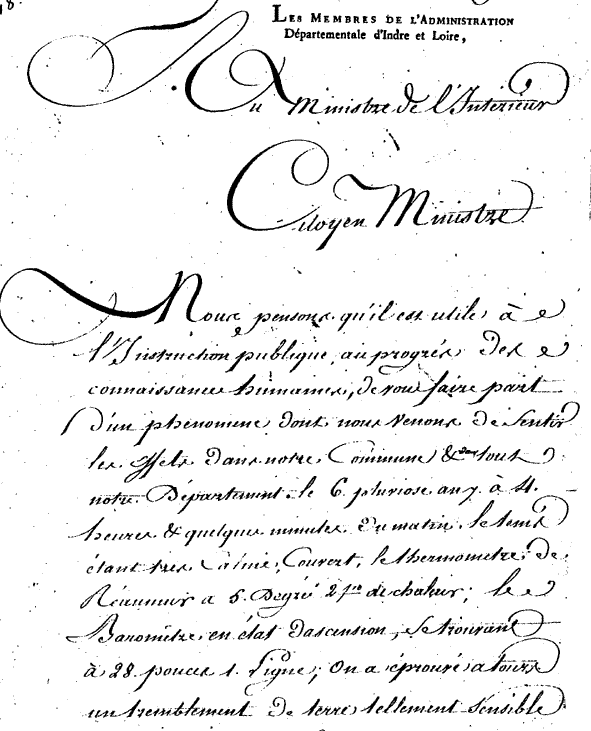 18.
LES MEMBRES DE L'ADMINISTRATION
Départementale d'Indre et Loire,
Au Ministre de l'Intérieur
Citoyen Ministre
Nous pensons qu'il est utile à
l'Instruction publique, au progrès des
connaissances humaines, de vous faire part
d'un phénomène dont nous venons de sentir
les effets dans notre Commune & dans tout
notre Département. le 6. pluviose an 7. à 4.
heures & quelques minutes du matin, le tems
étant très Calme, Couvert, le thermomètre de
Réaumur a 5. Degrés de chaleur; le
Baromètre en état d'ascension, se trouvant
à 28. pouces 1. Ligne; On a éprouvé a tours
un tremblement de terre tellement sensible